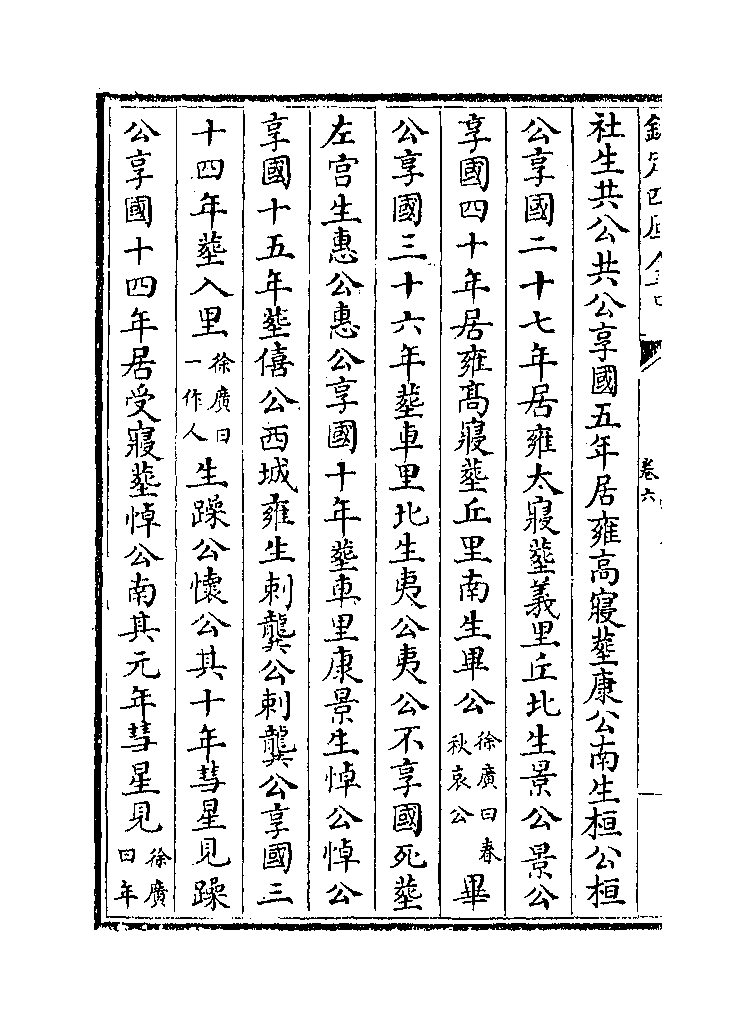 欽定四庫全書
卷六
社生共公共公享國五年居雍高寢葬康公南生桓公桓
公享國二十七年居雍太寢葬義里丘北生景公景公
享國四十年居雍高寢葬丘里南生畢公徐廣曰春秋哀公畢
公享國三十六年葬車里北生夷公夷公不享國死葬
左宫生惠公惠公享國十年葬車里康景生悼公悼公
享國十五年葬僖公西城雍生刺龔公刺龔公享國三
十四年葬入里徐廣曰一作人生躁公懷公其十年彗星見躁
公享國十四年居受寢葬悼公南其元年彗星見徐廣曰年